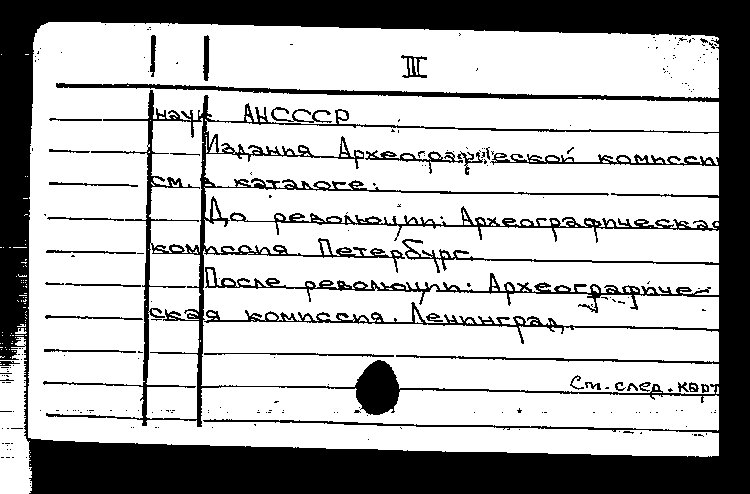 III
наук АНСССР
Издания Археографической комиссии
см. в каталоге:
До революции: Археографическая
комиссия. Петербург.
После революции: Археографиче-
ская комиссия. Ленинград.
См. след. карт